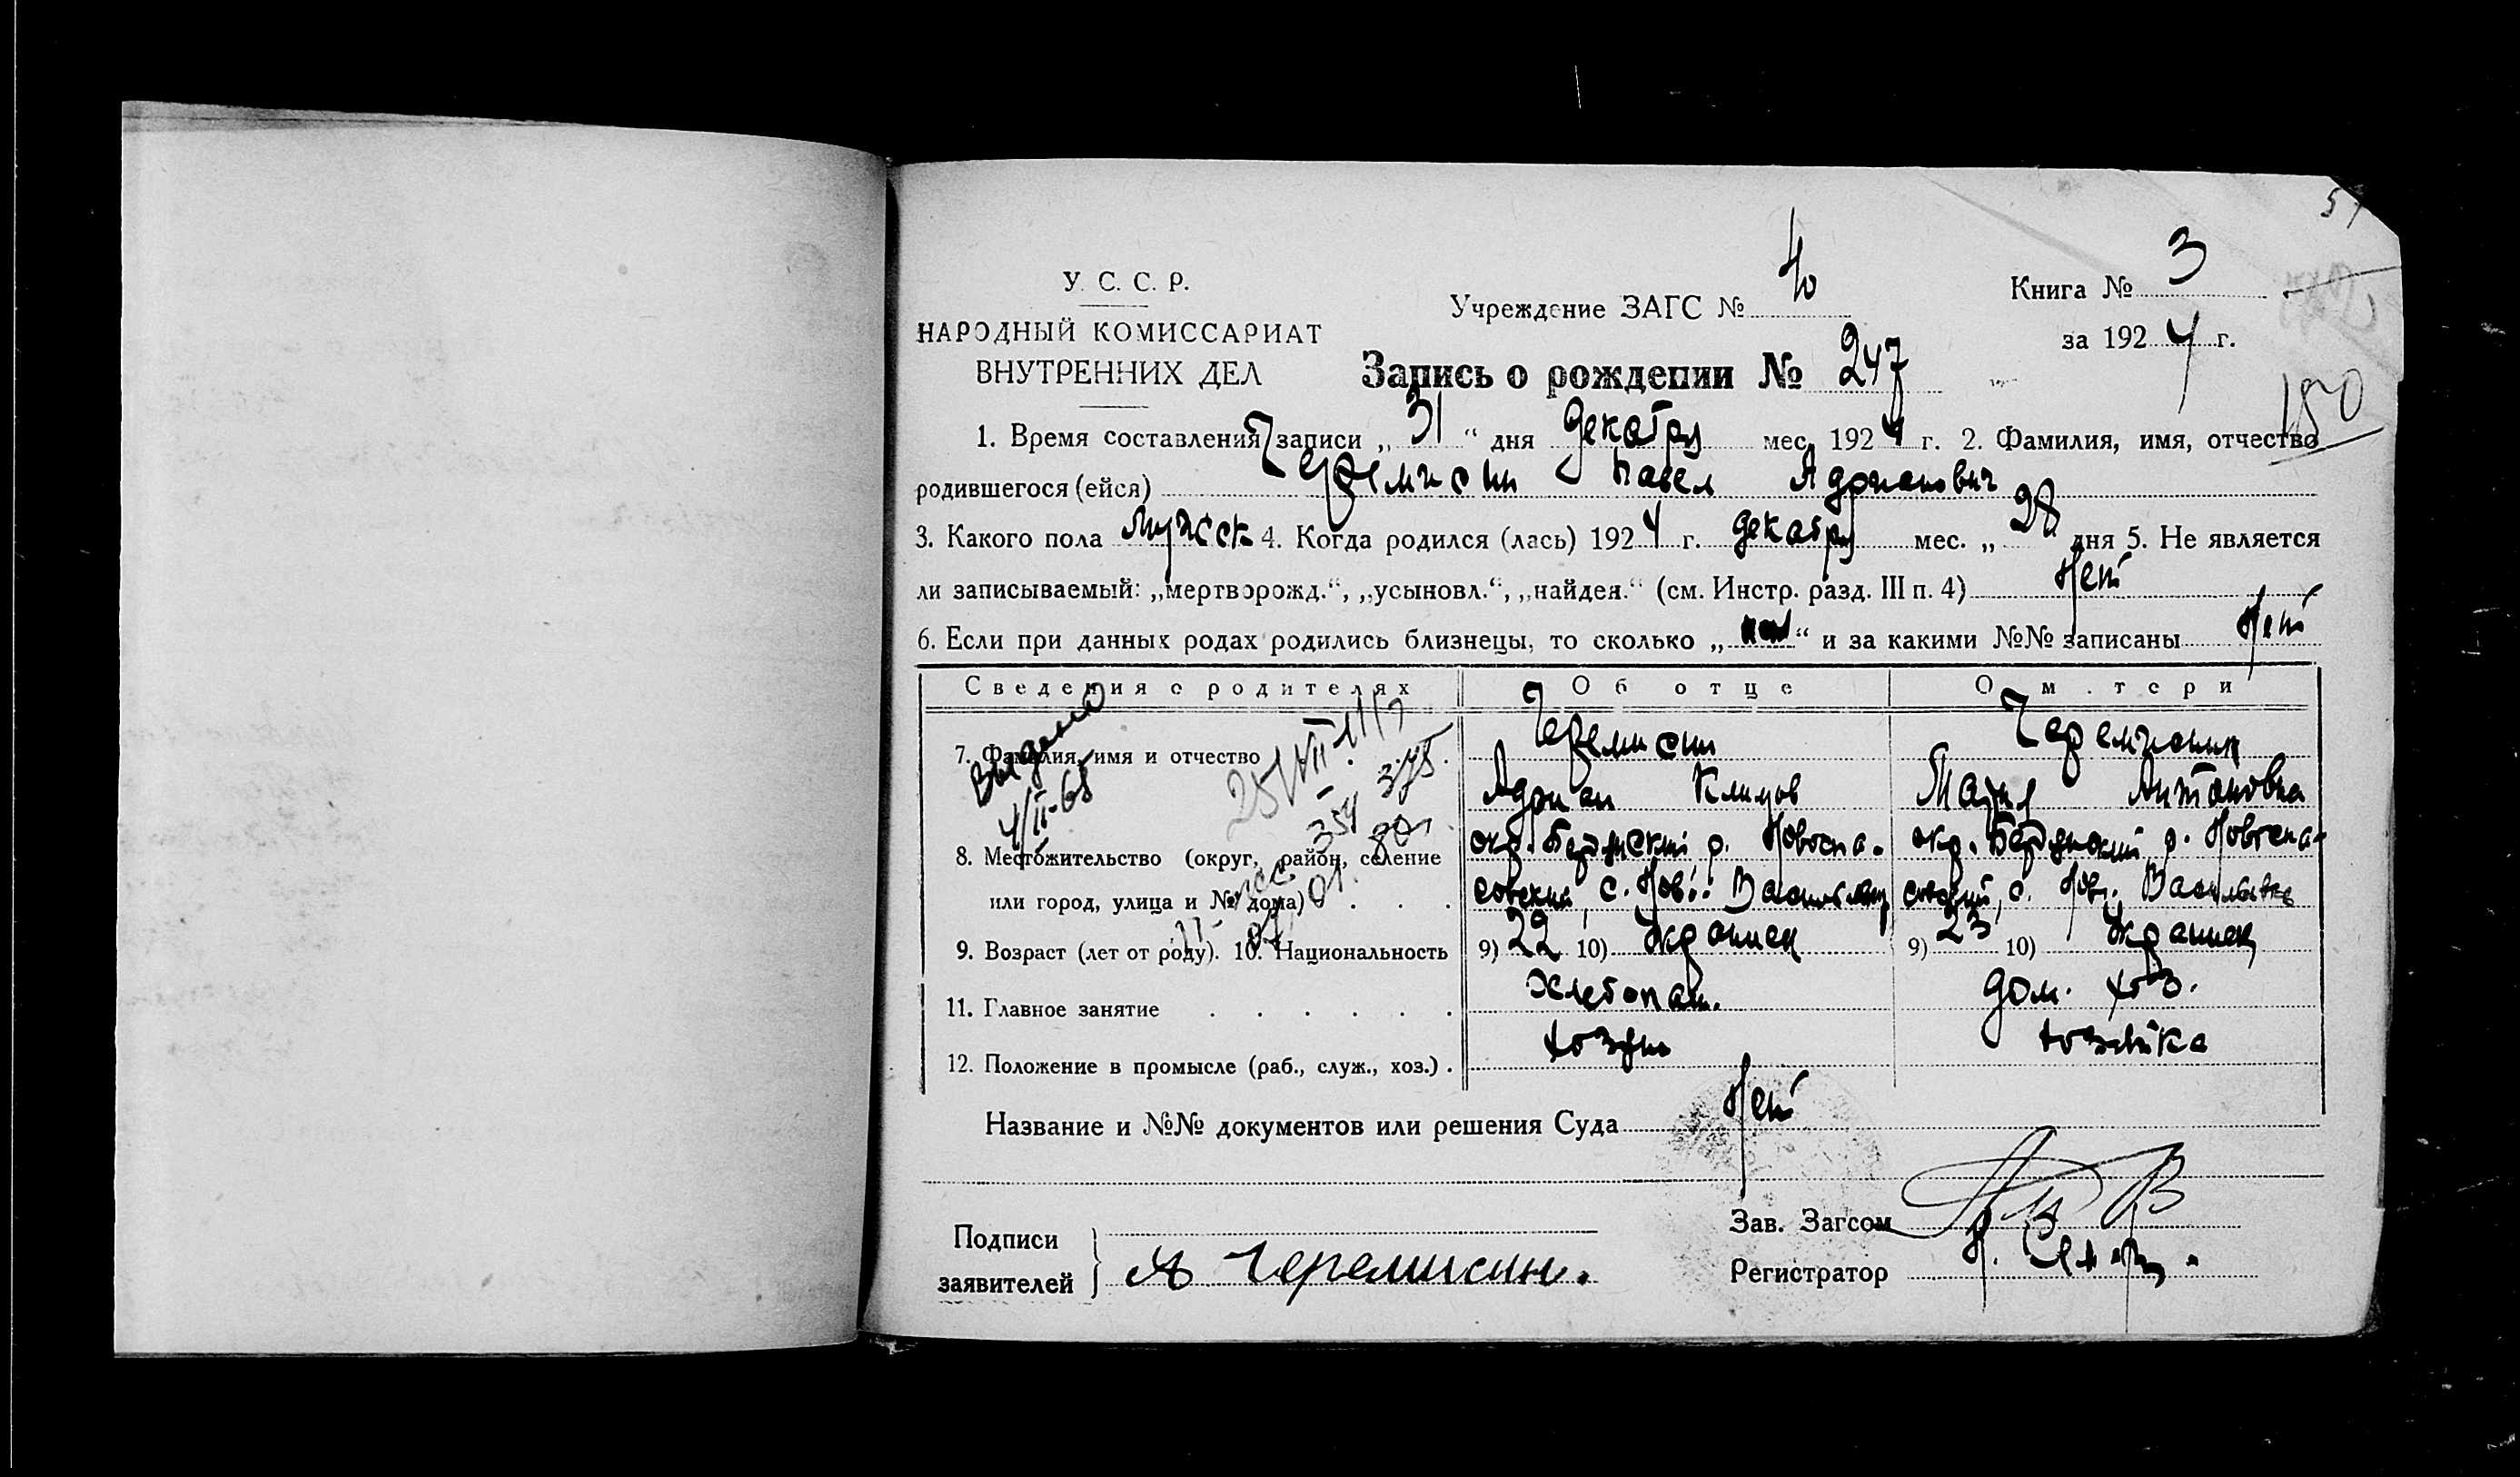 51
У. С. С. Р.
НАРОДНЫЙ КОМИССАРИАТ
ВНУТРЕННИХ ДЕЛ
Учреждение ЗАГС №
Книга № 3
за 1924 г.
Запись о рождении № 247
150
1. Время составления записи „31“ дня декабря мес. 1924 г. 2. Фамилия, имя, отчество
родившегося (ейся) Черемисин Павел Адрианович
3. Какого пола мужск 4. Когда родился (лась) 1924 г. декабря мес. „28 дня 5. Не является
ли записываемый: „мертворожд.“, „усыновл.“, „найден.“ (см. Инстр. разд. III п. 4) Нет
6. Если при данных родах родились близнецы, то сколько „ “ и за какими №№ записаны Нет
Сведения о родителях Об отце О м.тери
Выдано
4/II-65
354 375
7. Фамилия, имя и отчество Черемисин Черемисина
Адриан Климов Мария Антоновна
8. Местожительство (округ, район, селение окр. Бердянский р. Новоспа- окр. Бердянский р. Новоспа-
или город, улица и № дома) совский, с. Нов. Васильевка совский, с. Нов. Васильевка
9. Возраст (лет от роду). 10. Национальность 9) 22 10) Украинец 9) 23 10) Украинец
11. Главное занятие Хлебопаш. дом. хоз.
12. Положение в промысле (раб., служ., хоз.) хозяин хозяйка
Название и №№ документов или решения Суда Нет
Зав. Загсом
Подписи
заявителей А Черемисин.
Регистратор